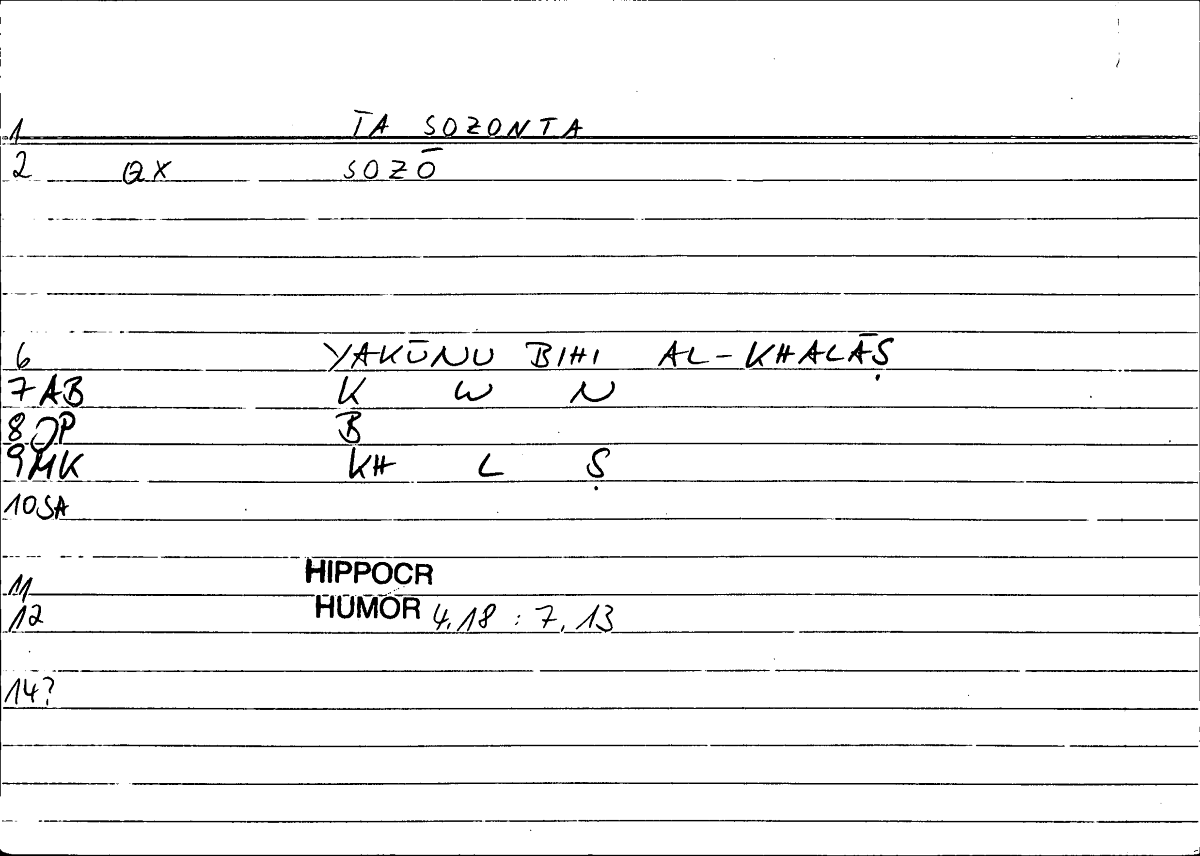 1 TA SOZONTA
2 QX SOZŌ
6 YAKŪNU BIHI AL-KHALĀṢ
7 AB K W N
8 OP B
9 MK KH L Ṣ
10 SA
11 HIPPOCR
12 HUMOR 4,18 : 7,13
14?